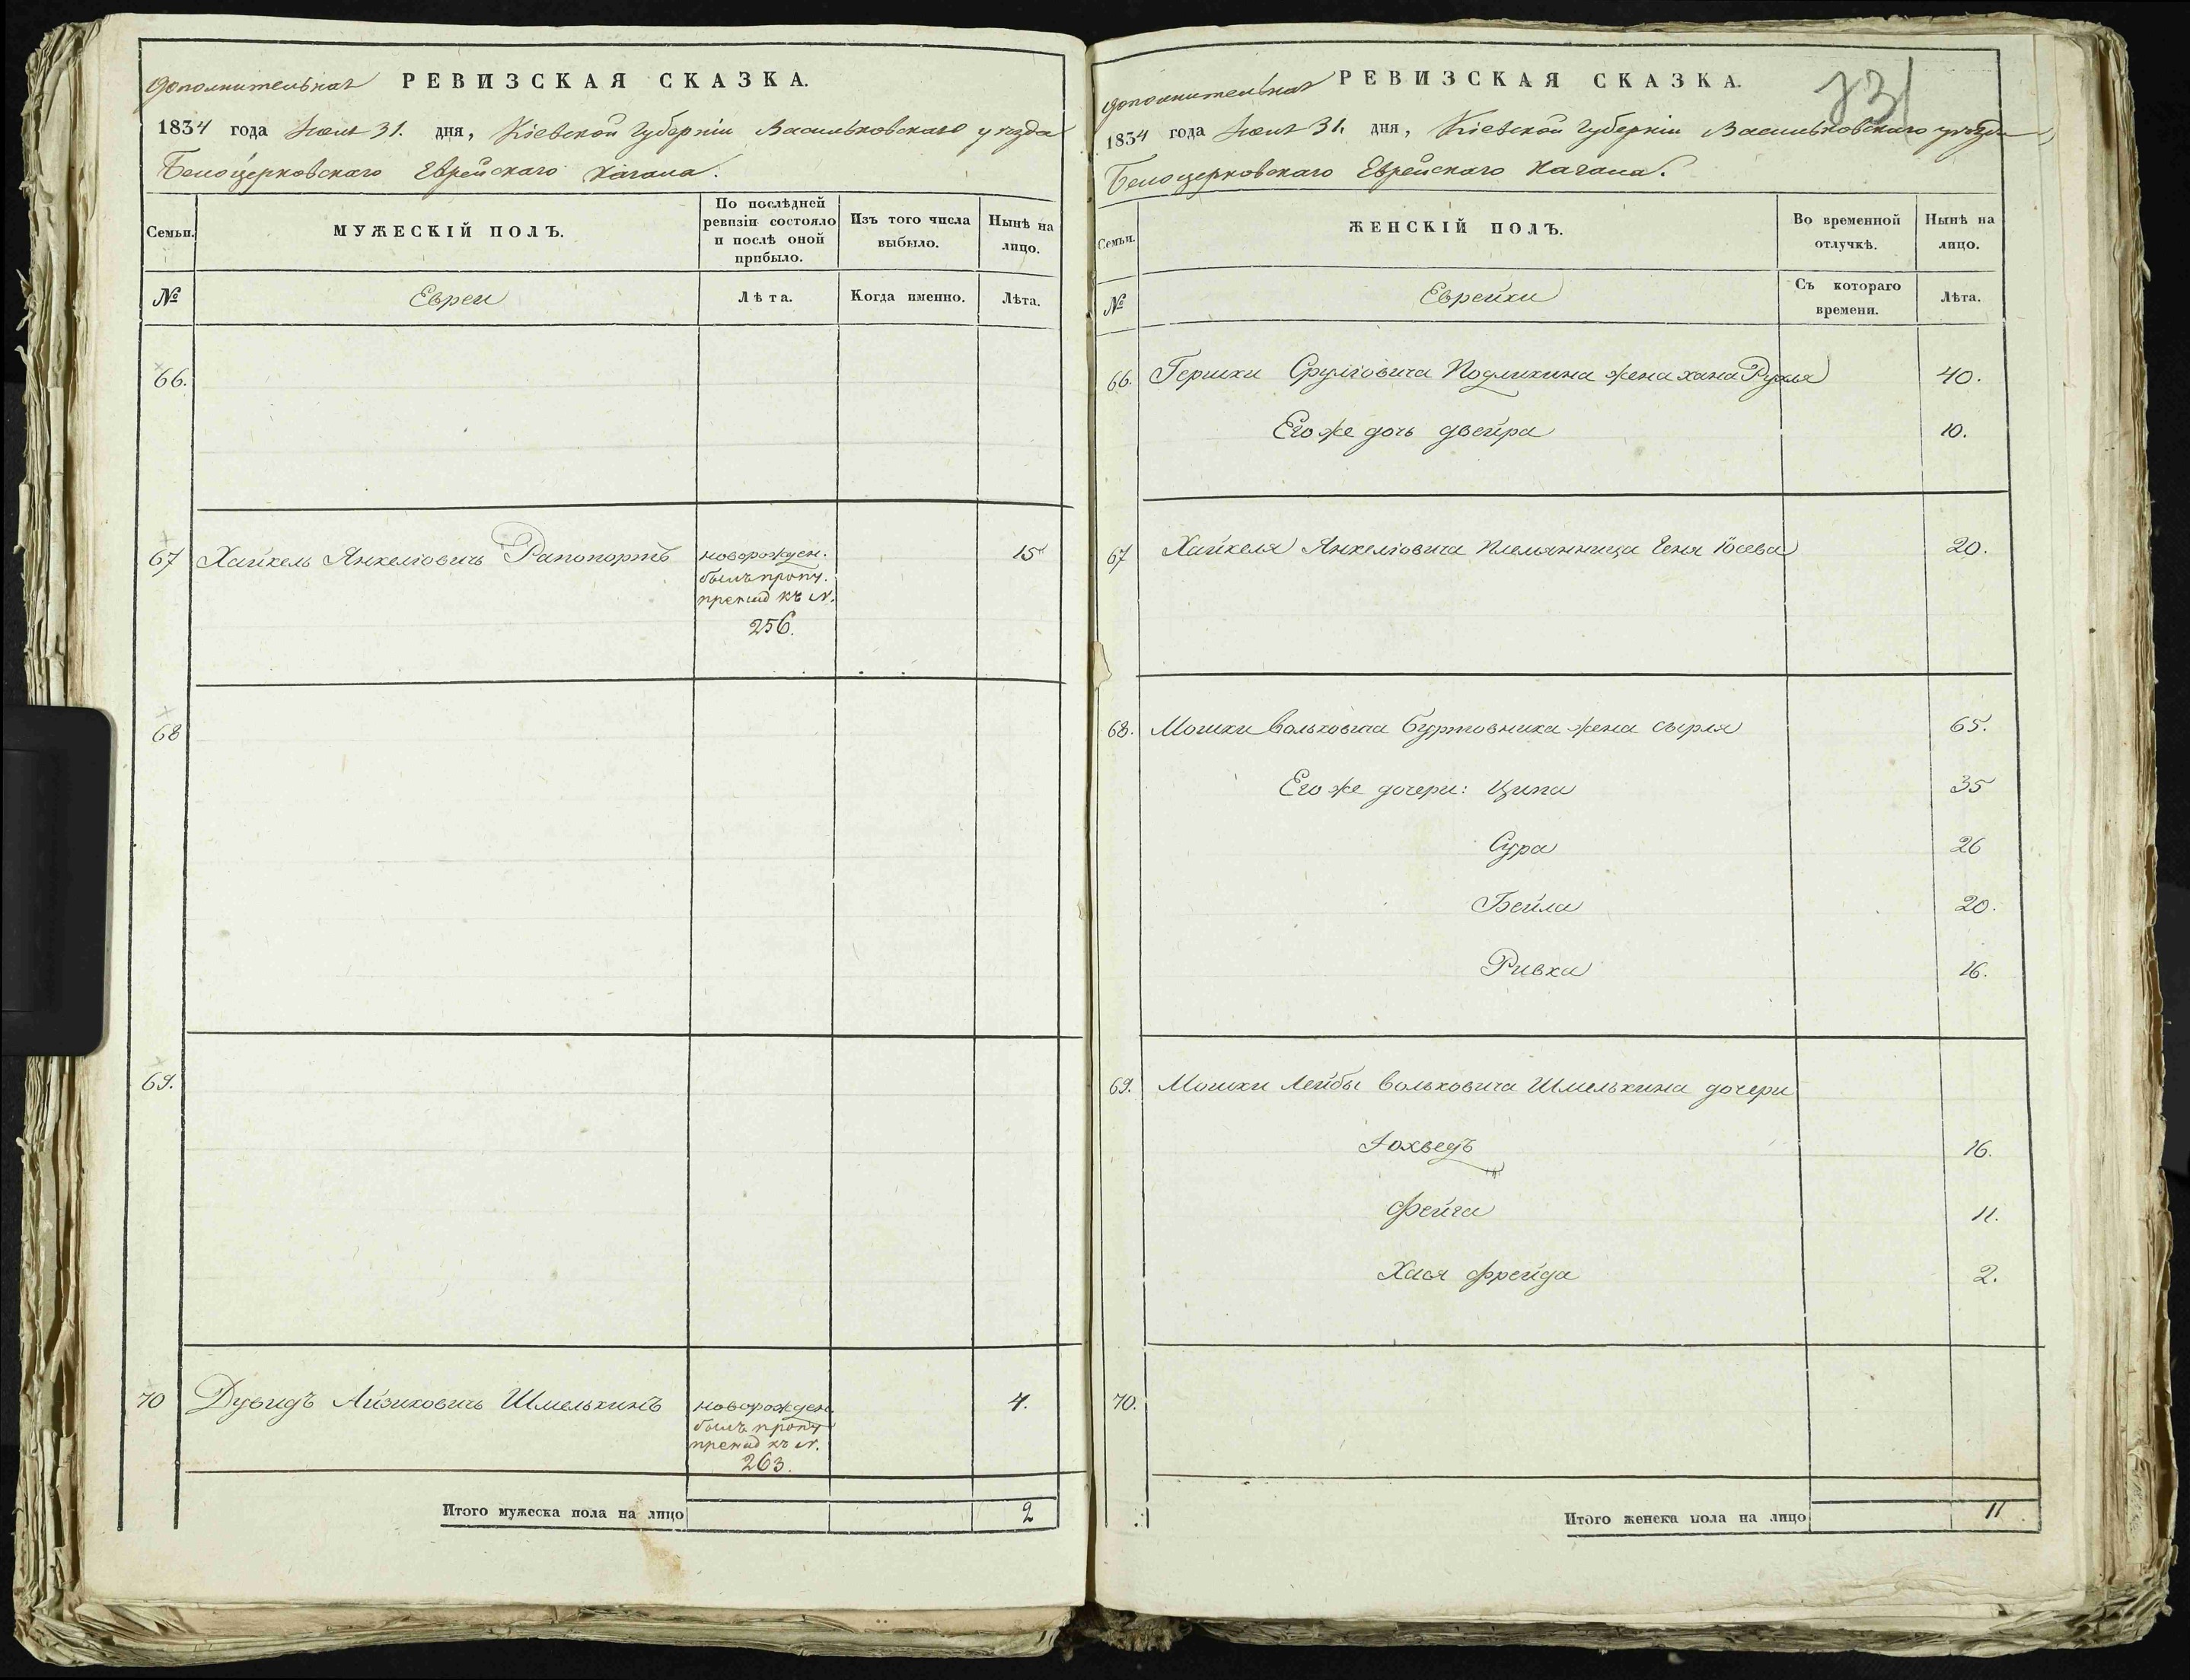 дополнительная РЕВИЗСКАЯ СКАЗКА.
1834 года Июля 31. дня, Кіевской Губерніи Васильковскаго уѣзда
Белоцерковскаго Еврейскаго Кагала.
Семьи.
МУЖЕСКІЙ ПОЛЪ.
По послѣдней ревизіи состояло и послѣ оной прибыло.
Изъ того числа выбыло.
Нынѣ на лицо.
№
Евреи
Лѣта.
Когда именно.
Лѣта.
66.
67 Хайкель Янкеліовичь Рапопортъ новорожден. 15
былъ пропу.
прежид къ N.
256.
68
69.
70 Дувидъ Айзиковичь Шмелькинъ новорожден 4.
былъ пропу
прежид къ N.
263.
Итого мужеска пола на лицо 2
731
дополнительная РЕВИЗСКАЯ СКАЗКА.
1834 года Июля 31. дня, Кіевской Губерніи Васильковскаго уѣзда
Белоцерковскаго Еврейскаго Кагала.
Семьи.
ЖЕНСКІЙ ПОЛЪ.
Во временной отлучкѣ.
Нынѣ на лицо.
№
Еврейки
Съ котораго времени.
Лѣта.
66. Гершки Сруліовича жена хана Рухля 40.
Его же дочь двейра 10.
67 Хайкеля Янкеліовича племянница Геня Іосева 20.
68. Мошки Вольковича Буртовника жена сырля 65.
Его же дочери: Ципа 35
Сура 26
Бейла 20.
Ривка 16.
69. Мошки Лейбы Вольковича Шмелькина дочери
Іохведъ 16.
Фейга 11.
Хася фрейда 2.
70.
Итого женска пола на лицо 11